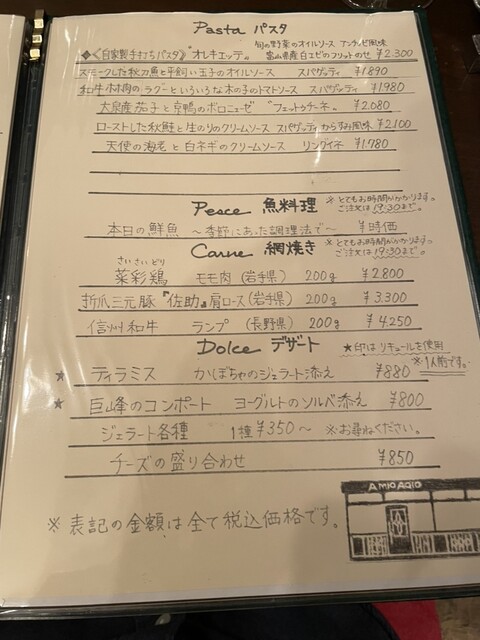 Pasta パスタ
旬の野菜のオイルソース アンチョビ風味
❖<自家製手打ちパスタ> "オレキエッテ" 富山県産白エビのフリットのせ ¥2.300
スモークした秋刀魚と平飼い玉子のオイルソース スパゲッティ ¥1.890
和牛ホホ肉のラグーといろいろな木の子のトマトソース スパゲッティ ¥1980
大泉産茄子と京鴨のボロニェーゼ フェットゥチーネ ¥2.080
ローストした秋鮭と生のりのクリームソース スパゲッティ からすみ風味 ¥2100
天使の海老と白ネギのクリームソース リングイネ ¥1.780
Pesce 魚料理 ※とてもお時間がかかります。
ご注文は19:30まで。
本日の鮮魚 ～季節にあった調理法で～ ¥時価
Carne 網焼き ※とてもお時間がかかります。
ご注文は19:30まで。
さいさいどり
菜彩鶏 モモ肉(岩手県) 200g ¥2.800
折爪三元豚『佐助』肩ロース(岩手県) 200g ¥3.300
信州和牛 ランプ(長野県) 200g ¥4.250
Dolce デザート ★印はリキュールを使用
※1人前です。
★ ティラミス かぼちゃのジェラート添え ¥880
★ 巨峰のコンポート ヨーグルトのソルベ添え ¥800
ジェラート各種 1種¥350～ ※お尋ねください。
チーズの盛り合わせ ¥850
AMIO AGIO
※表記の金額は全て税込価格です。